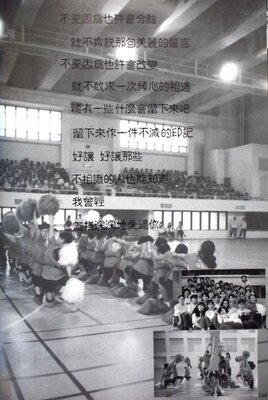 不要因為也許會分離
就不肯說那句美麗的誓言
不要因為也許會改變
就不敢求一次傾心的相遇
總有一些什麼會留下來吧
留下來作一件不滅的印記
好讓 好讓那些
不相識的人也能知道
我曾經
怎樣深深地愛過你